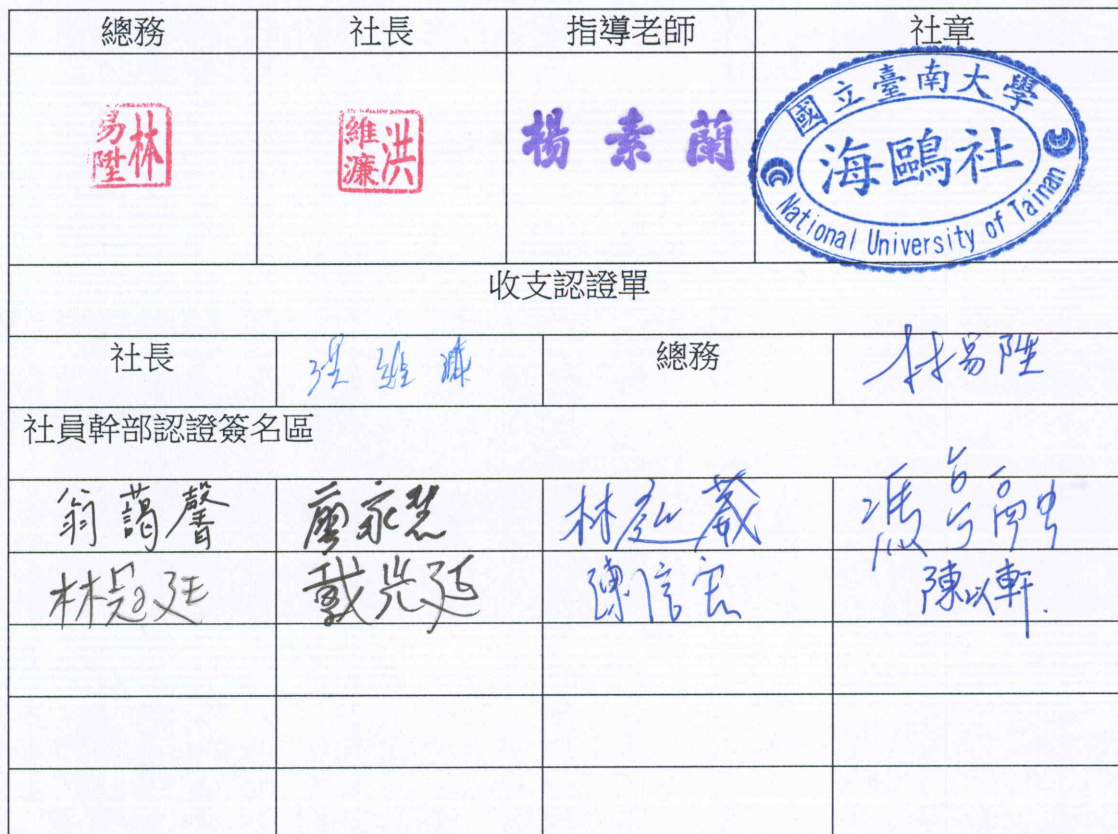 總務 社長 指導老師 社章
林易陞 洪維濂 楊素蘭 國立臺南大學
海鷗社
National University of Tainan
收支認證單
社長 洪維濂 總務 林易陞
社員幹部認證簽名區
翁藹馨 廖家慧 林庭葳 馮
林冠廷 戴光廷 陳信宏 陳以軒.